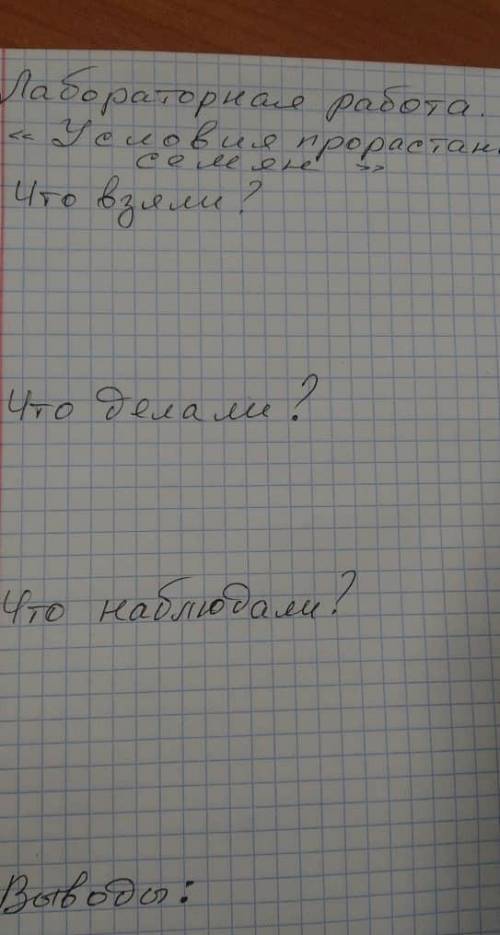 Лабораторная работа.
« Условия прорастан
семян »
Что взяли?
Что делали?
Что наблюдали?
Выводы: